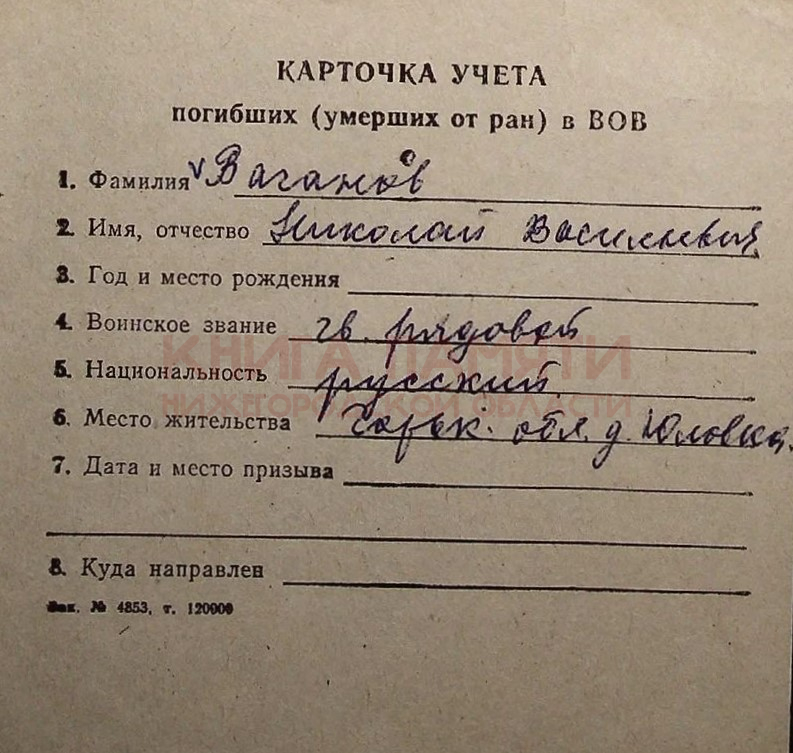 КАРТОЧКА УЧЕТА
погибших (умерших от ран) в ВОВ
1. Фамилия Ваганов
2. Имя, отчество Николай Васильевич
3. Год и место рождения
4. Воинское звание гв. рядовой
КНИГА ПАМЯТИ
5. Национальность русский
НИЖЕГОРОДСКОЙ ОБЛАСТИ
6. Место жительства Горьк. обл. д. Юловка.
7. Дата и место призыва
8. Куда направлен
Зак. № 4853, т. 120000